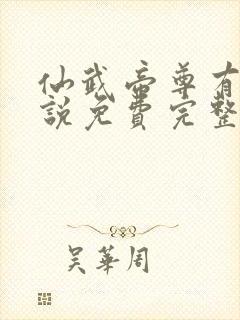 仙武帝尊有
說免費完整
吴華周